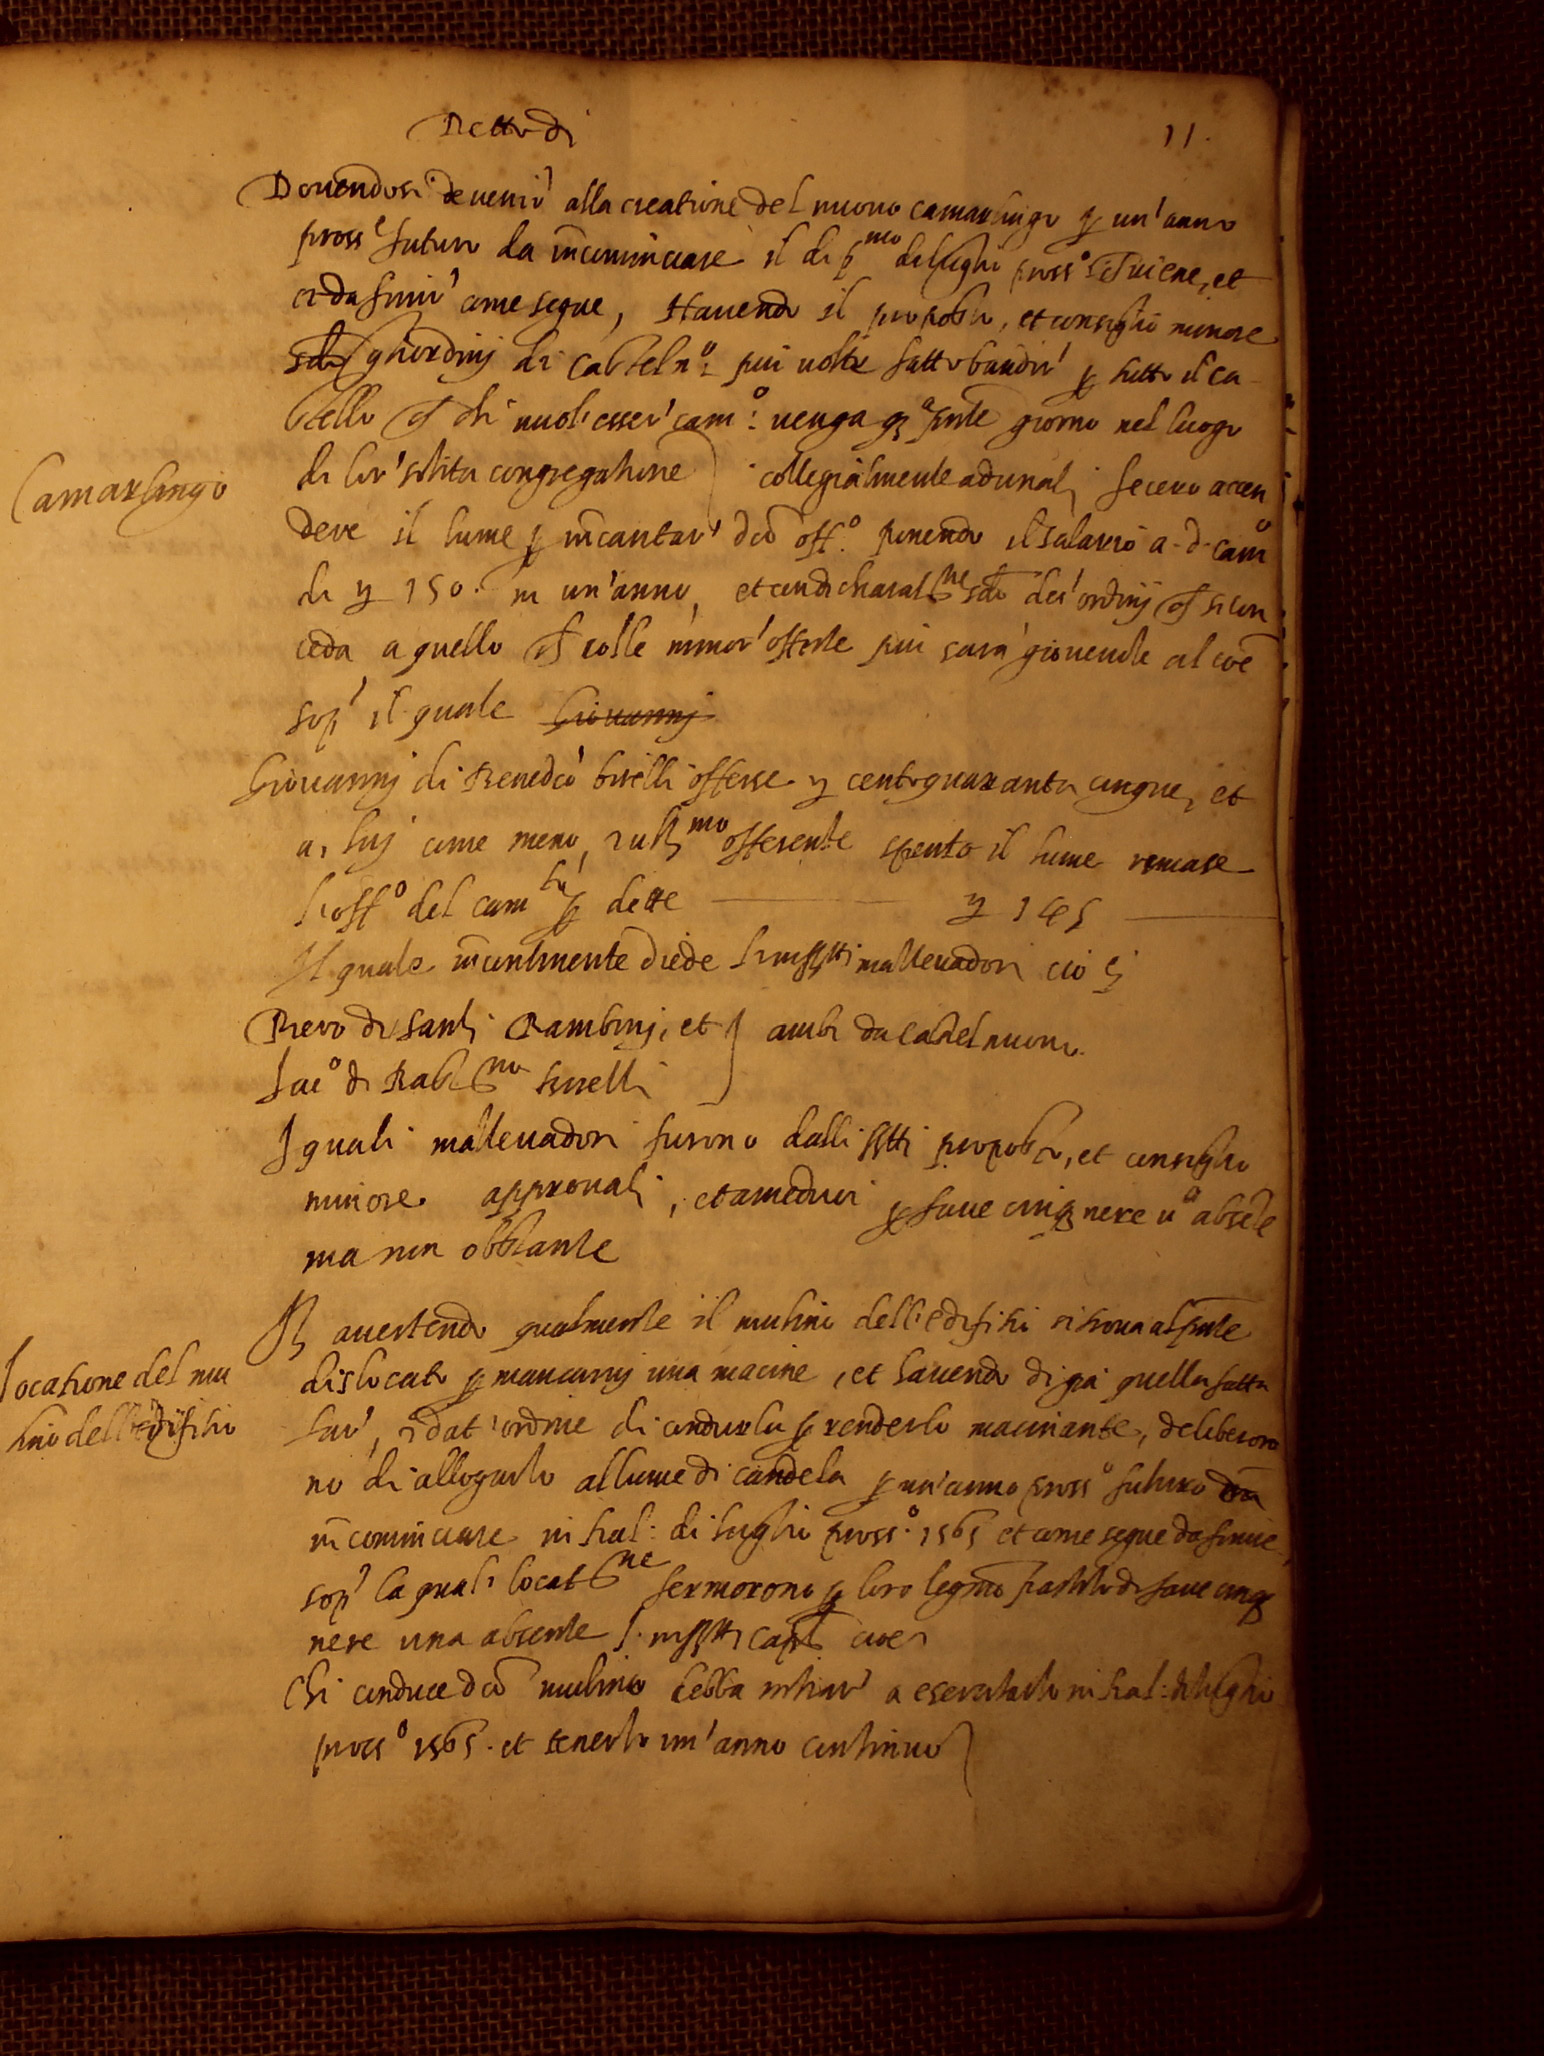 Detto di
11.
Dovendosi devenir' alla creatione del nuovo camarlingo p un' anno
pross.e futuro da incominciare il di p.mo di luglio pross.o viene, et
da finir' come segue, Havendo il proposto, et consiglio minore
gl'ordinj di Castel n.o più volte fatto bandir' p tutto il ca
stello ch chi vuol' esser' cam.o: venga q.o pnte giorno nel luogo
di lor' solita congregatione collegialmente adunati fecero accen
Camarlingo
dere il lume p incantar' dco off.o ponendo il salario a d. cam.o
di 150. in un' anno, et con dichiarat.ne delj' ordinj ch si con
ceda a quello ch colle minor' offerte più sarà giovevole al coe
sop' il quale Giovannj
Giovannj di Benedco offerse centoquaranta cinque, et
a, luj come meno, ult.mo offerente spento il lume rimase
l'off.o del cam.to p dette 145
Il quale incontinente diede l'infrtti mallevadori cio è
Piero di Santi Bambinj, et ambi da Castelnuovo
Iac.o di
I quali mallevadori furono dalli sptti proposto, et consiglio
minore approvati, et amedui p fave cinq nere u.a absete
ma non obstante
It avertendo qualmente il mulino dell' edifitii si trova al pnte
locatione del mu
lino dell' edifitii
dislocato p mancarvj una macine, et havendo di già quella fatta
far', dat' ordine di condurla p renderlo macinante, deliberoro
no di allogarlo al lume di candela p un' anno pross.o futuro da
incominciare in kal: di luglio pross.o 1565 et come segue da finire,
sop' la quali locat.ne fermorono p loro legmo partito di fave cinq
nere una absente l' infrtti capli cioe
Chi conduce dco mulino debba intrar' a esercitarlo in kal: di luglio
pross.o 1565. et tenerlo un' anno continuo